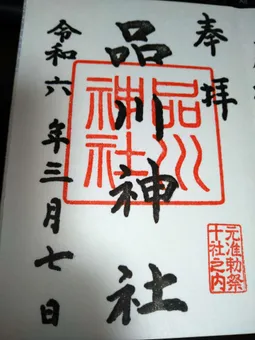 奉拝
品川神社
品川神社
元准勅祭
十社之内
令和六年三月七日